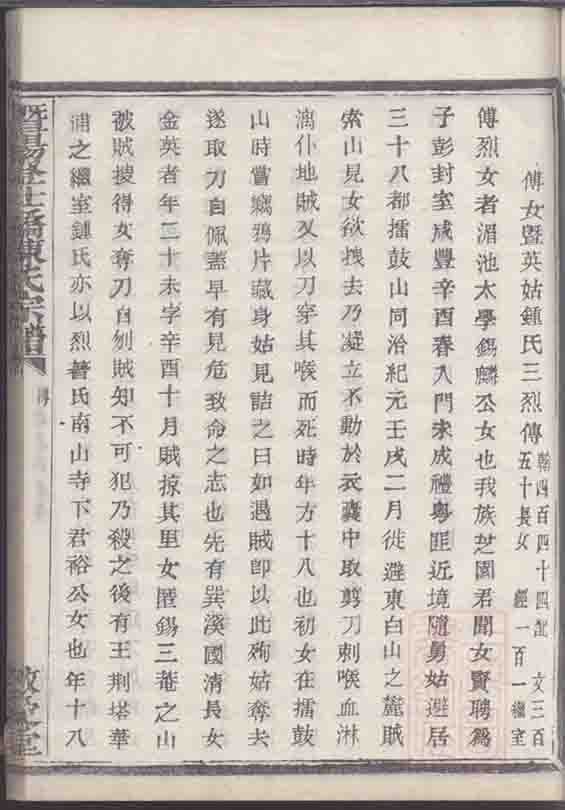 傅女暨英姑鍾氏三烈傳 翰四百四十四配 文三百五十長女 經一百一繼室
傅烈女者湄池太學錫麟公女也我族芝園君聞女賢聘爲
子彭封室咸豐辛酉春入門未成禮粤匪近境隨舅姑避居
三十八都擂鼓山同治紀元壬戌二月徙避東白山之麓賊
索山見女欲拽去乃凝立不動於衣囊中取剪刀刺喉血淋
漓仆地賊又以刀穿其喉而死時年方十八也初女在擂鼓
山時嘗竊鴉片藏身姑見詰之曰如遇賊卽以此殉姑奪去
遂取刀自佩蓋早有見危致命之志也先有巽溪國清長女
金英者年二十未字辛酉十月賊掠其里女匿錫三菴之山
被賊搜得女奪刀自刎賊知不可犯乃殺之後有王荆塔華
浦之繼室鍾氏亦以烈著氏南山寺下君裕公女也年十八
暨陽 橋陳氏宗譜
傳